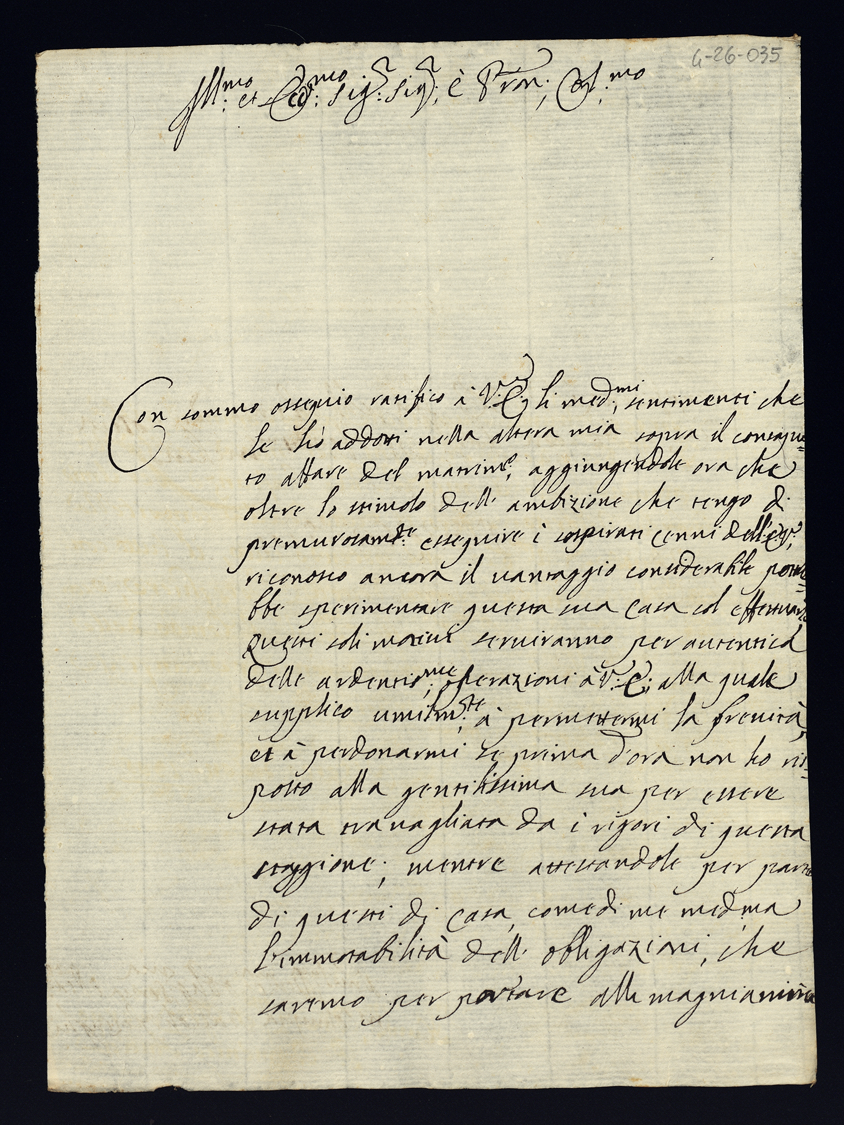 4-26-035
Ill:mo et Ecc:mo Sig:r Sig:r, è Pron: Col:mo
Con sommo ossequio ratifico à V:a E:, li med:mi sentimenti che
le hò addotti nella altera mia sopra il consapu=
to affare del matrim:o, aggiungendole ora che
oltre lo stimolo delle ambizione che tengo di
premurosam:te esseguire i sospirati cenni dell
riconosco ancora il vantaggio considerabile potre=
bbe sperimentare questa sua Casa col effettuar
Questi soli motivi serviranno per autentica
delle ardentis:me operazioni à V:a E:, alla quale
supplico umilm:te à permettermi la
et à perdonarmi se prima d'ora non ho ris=
posto alla gentilissima sua per essere
stata travagliata da i rigori di questa
staggione; mentre attestandole per parte
di questi di Casa, come di me med:ma
l'immutabilità delle obligazioni, che
saremo per portare alla magnianimità